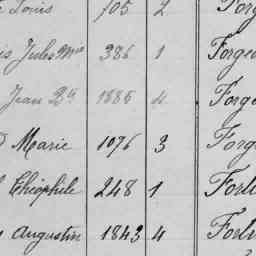 Louis 705 2
Jules Mie 386 1 Forge
Jean Bte 1886 4 Forge
Marie 1076 3 Forg
Théophile 248 1 Forl
Augustin 1843 4 Forl